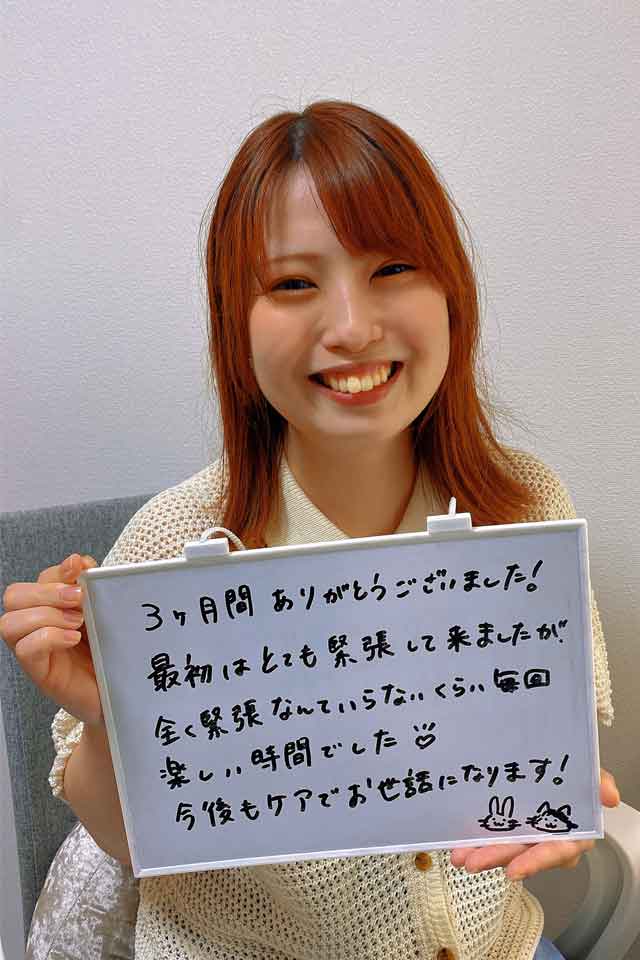 3ヶ月間ありがとうございました!
最初はとても緊張して来ましたが、
全く緊張なんていらないくらい毎回
楽しい時間でした
今後もケアでお世話になります!